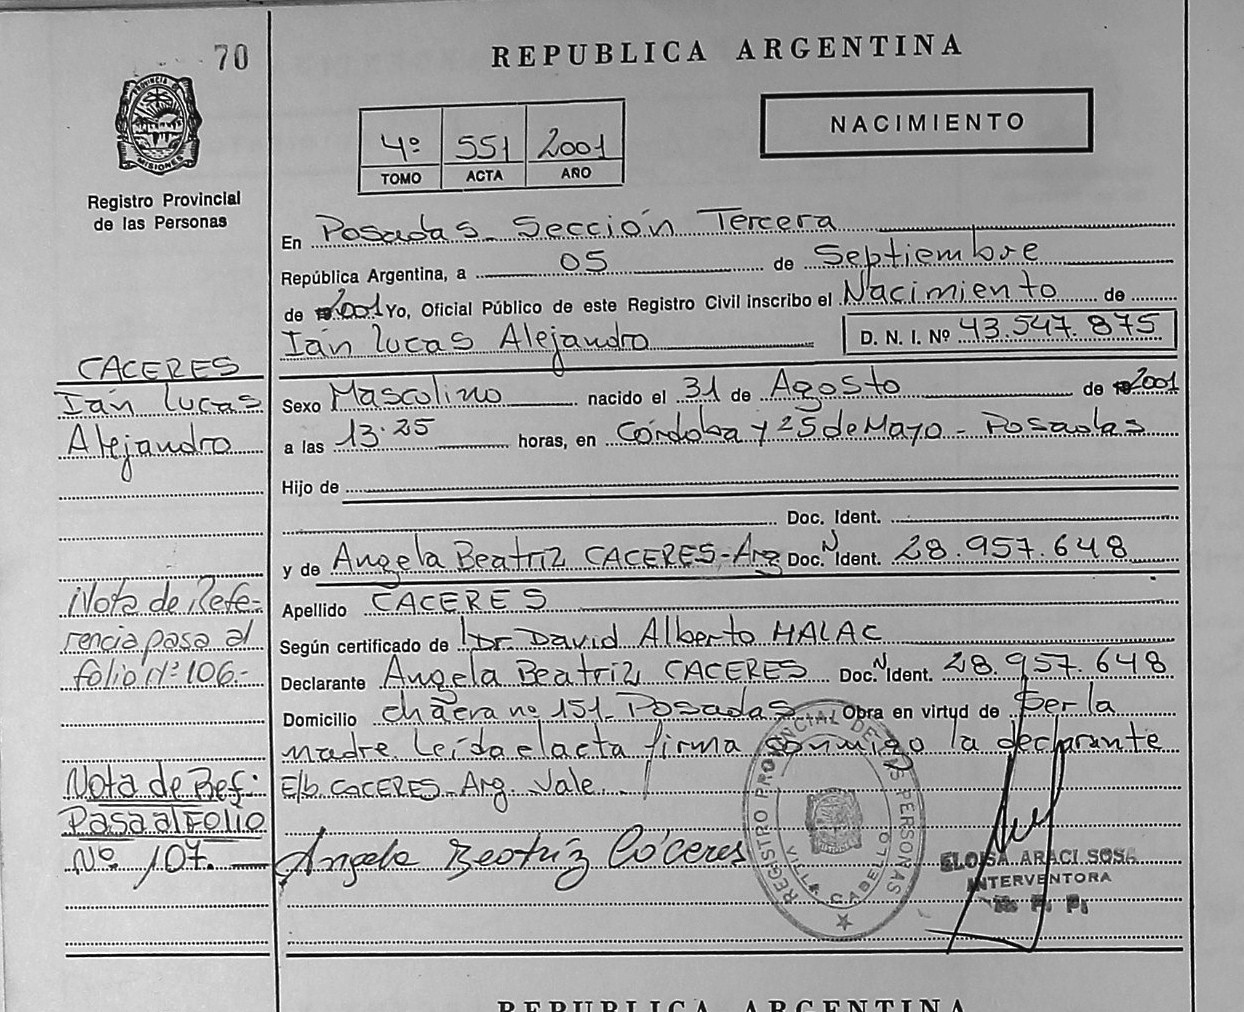 70
REPUBLICA ARGENTINA
PROVINCIA DE MISIONES
Registro Provincial
de las Personas
4º 551 2001
TOMO ACTA AÑO
NACIMIENTO
En Posadas Sección Tercera
República Argentina, a 05 de Septiembre
de 2001 Yo, Oficial Público de este Registro Civil inscribo el Nacimiento de
Ián Lucas Alejandro D. N. I. Nº 43.547.875
CACERES
Ián Lucas
Alejandro
Sexo Masculino nacido el 31 de Agosto de 2001
a las 13·25 horas, en Córdoba y 25 de Mayo - Posadas
Hijo de
Doc. Ident.
y de Angela Beatriz CACERES-Arg Doc. N Ident. 28.957.648
Apellido CACERES
Según certificado de Dr. David Alberto HALAC
Declarante Angela Beatriz CACERES Doc. N Ident. 28.957.648
Domicilio chacra nº 151- Posadas Obra en virtud de Ser la
madre. Leída el acta firma conmigo la declarante
E/b. CACERES- Arg. Vale
Nota de Refe-
rencia pasa al
folio Nº 106.-
Nota de Ref.
Pasa al FOLIO
Nº 107.
Angela Beatriz Cáceres
REGISTRO PROVINCIAL DE LAS PERSONAS
VILLA CABELLO
ELOISA ARACI SOSA
INTERVENTORA
R. P. P.
REPUBLICA ARGENTINA